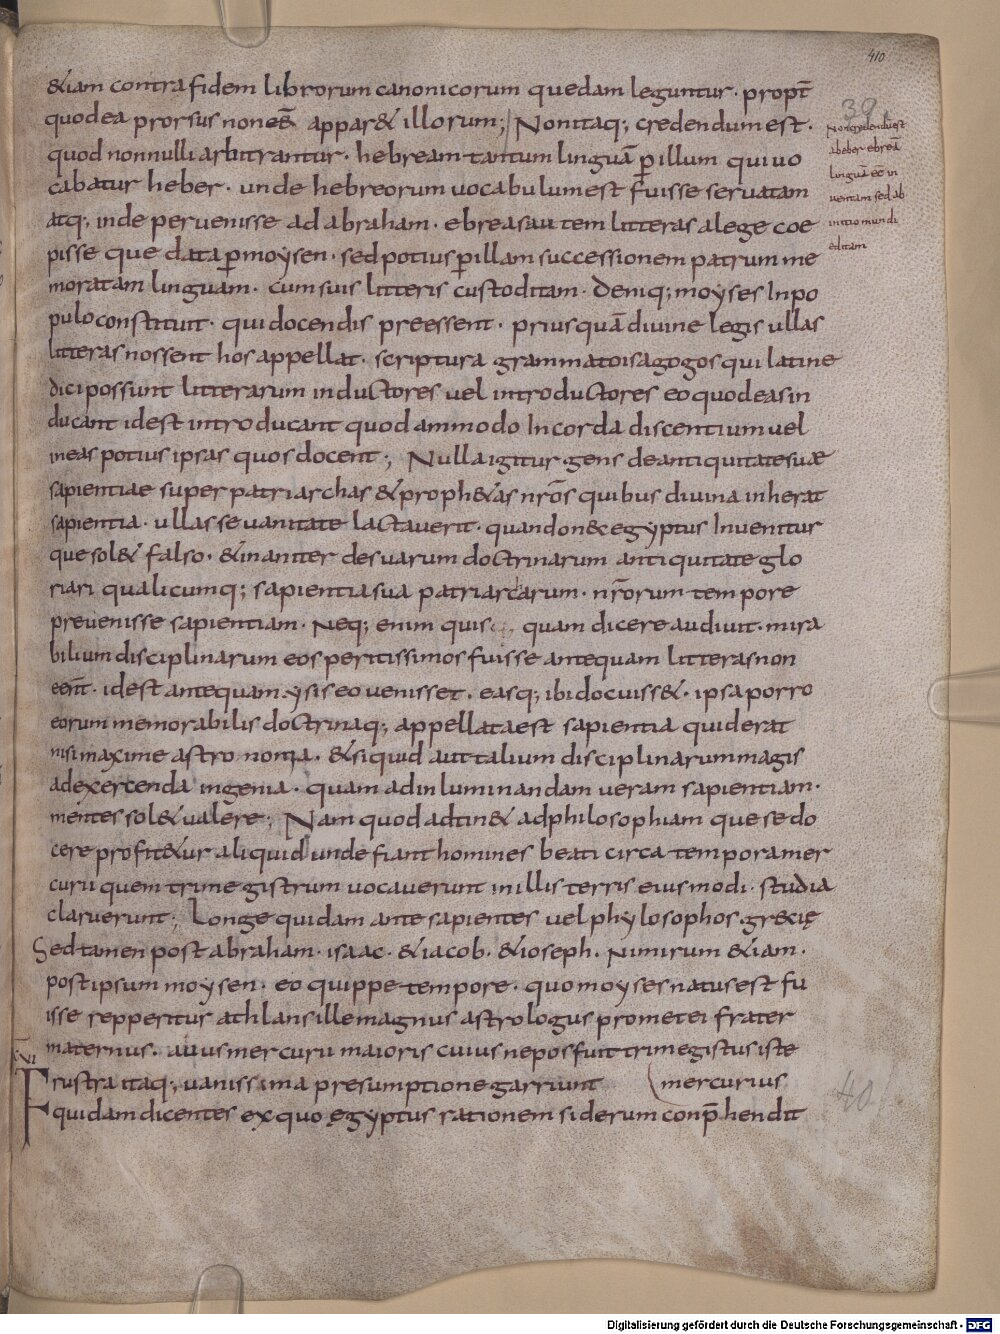 410
&iam contra fidem librorum canonicorum quedam leguntur · propt̄
quod ea prorsus non eē̄ appar& illorum; Non itaq; credendum est ·
39
quod nonnulli arbitrantur · hebream tantum linguā p̱ illum qui uo
cabatur heber · unde hebreorum uocabulum est fuisse seruatam
atq; inde peruenisse ad abraham · ebreas autem litteras a lege coe
pisse que data p̱ moysen · sed potius p̱ illam successionem patrum me
moratam linguam · cum suis litteris custoditam · Deniq; moyses In po
pulo constituit · qui docendis preessent · priusquā diuine legis ullas
litteras nossent hos appellat · scriptura grammatoisagogos qui latine
dici possunt litterarum inductores uel introductores eo quod eas in
ducant id est introducant quodammodo In corda discentium uel
in eas potius ipsas quos docent; Nulla igitur gens de antiquitate suæ
sapientiae super patriarchas & proph&as nr̄os quibus diuina inherat
sapientia · ullas se uanitate lactauerit · quando n&egyptus Inuenitur
que sol& falso · & inaniter de suarum doctrinarum antiquitate glo
riari qualicumq; sapientia sua patriarcharum · nr̄orum tempore
preuenisse sapientiam · Neq; enim quis quam dicere audiuit · mira
bilium disciplinarum eos peritissimos fuisse antequam litteras non
eēnt · id est antequam ysis eo uenisset · easq; ibi docuiss& · ipsa porro
eorum memorabilis doctrinaq; appellata est sapientia quid erat
nisi maxime astronomia · & siquid aut talium disciplinarum magis
ad exercenda ingenia · quam ad inluminandam ueram sapientiam ·
mentes sol& ualere; Nam quod adtin& ad philosophiam que se do
cere profit&ur aliquid unde fiant homines beati circa tempora mer
curii quem trimegistrum uocauerunt in illis terris eiusmodi · studia
claruerunt; Longe quidam ante sapientes uel phylosophos · greciȩ
Sed tamen post abraham · isaac · & iacob · & ioseph · Nimirum & iam ·
post ipsum moysen · eo quippe tempore · quo moyses natus est fu
isse repperitur athlans ille magnus astrologus prometei frater
maternus · auus mercurii maioris cuius nepos fuit trimegistus iste
Frustra itaq; uanissima presumptione garriunt mercurius
quidam dicentes ex quo ȩgyptus rationem siderum conp̱hendit
Non credendū est
ab eber ebreā
linguā ee in
uentam sed ab
initio mundi
editam
40
Digitalisierung gefördert durch die Deutsche Forschungsgemeinschaft - DFG